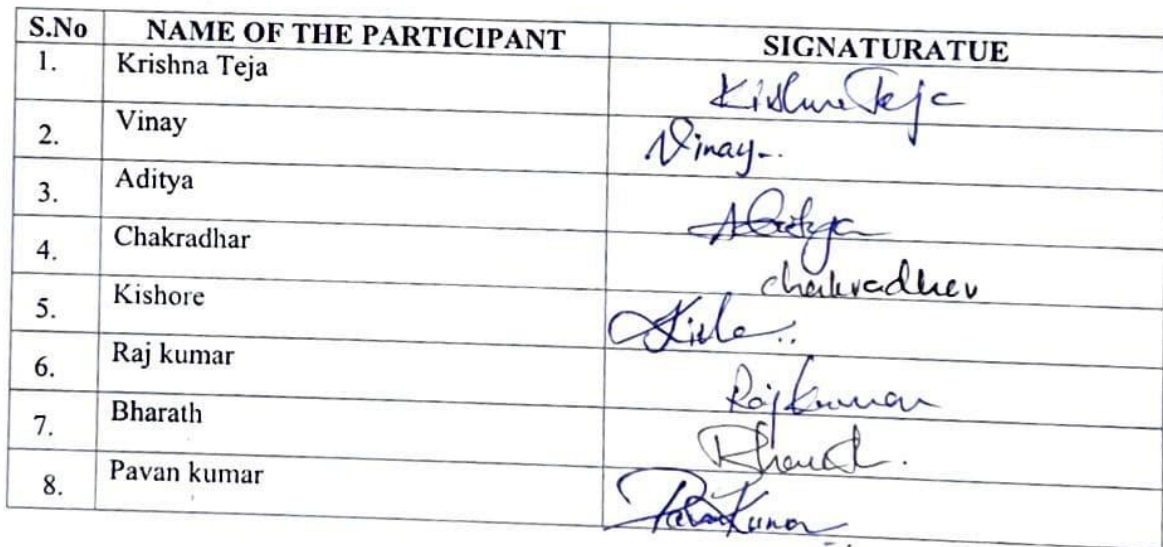 S.No NAME OF THE PARTICIPANT SIGNATURATUE
1. Krishna Teja Kishne Teja
2. Vinay Vinay
3. Aditya Aditya
4. Chakradhar chakradher
5. Kishore
6. Raj kumar Raj kumar
7. Bharath Bharath.
8. Pavan kumar Pavan Kumar